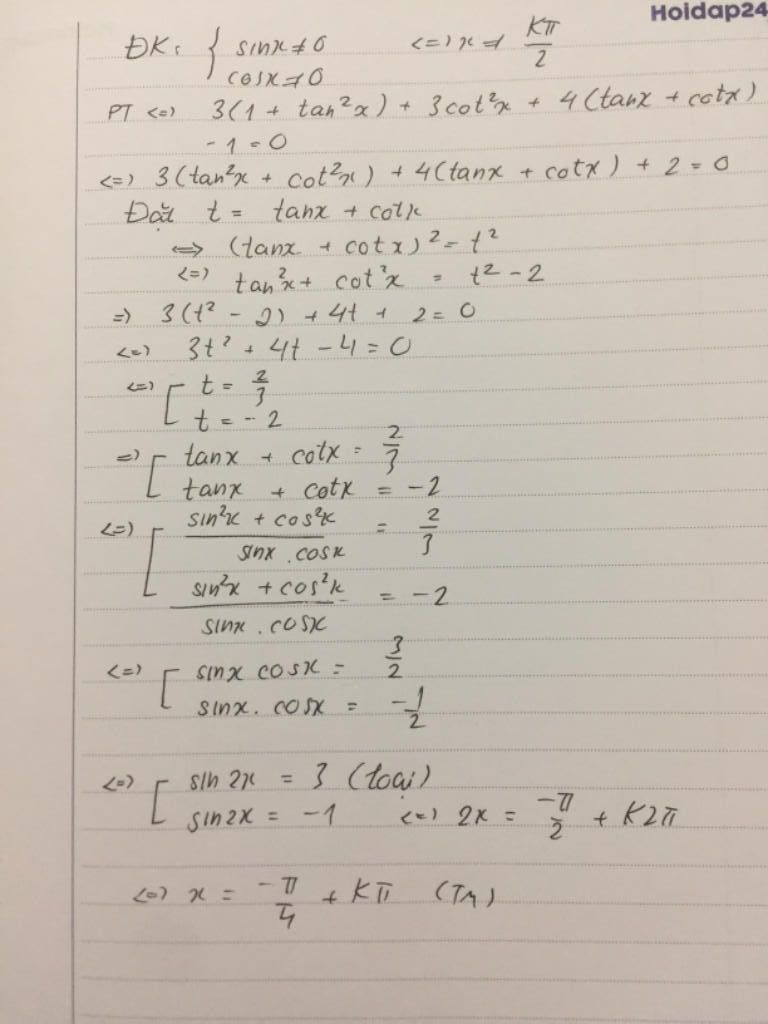 Hoidap24
ĐK: { sinx ≠ 0 <=> x ≠ kπ/2
cosx ≠ 0
PT <=> 3(1 + tan²x) + 3cot²x + 4(tanx + cotx)
- 1 = 0
<=> 3(tan²x + cot²x) + 4(tanx + cotx) + 2 = 0
Đặt t = tanx + cotx
<=> (tanx + cotx)² = t²
<=> tan²x + cot²x = t² - 2
=> 3(t² - 2) + 4t + 2 = 0
<=> 3t² + 4t - 4 = 0
<=> [ t = 2/3
t = - 2
=> [ tanx + cotx = 2/3
tanx + cotx = -2
<=> [ (sin²x + cos²x)/(sinx . cosx) = 2/3
(sin²x + cos²x)/(sinx . cosx) = - 2
<=> [ sinx cosx = 3/2
sinx . cosx = -1/2
<=> [ sin 2x = 3 (loại)
sin2x = -1 <=> 2x = -π/2 + k2π
<=> x = -π/4 + kπ (TM)